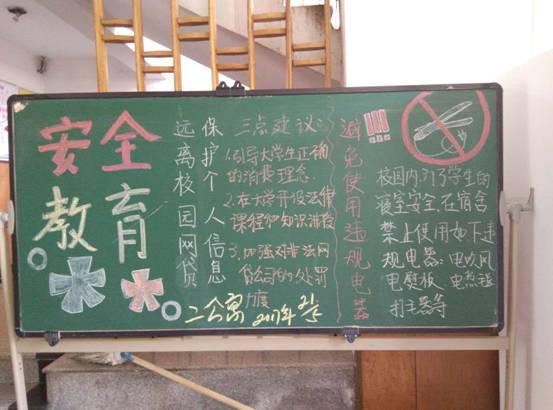 安全
教育
远离校园网贷
保护个人信息
三点建议:
1.引导大学生正确
的消费理念.
2.在大学开设法律
课程和知识讲授
3.加强对非法网
贷公司的处罚
力度
避免使用违规电器
!!!
校园内,为了学生的
寝室安全,在宿舍
禁止使用如下违
规电器:电吹风
电熨板
二公寓
2017年